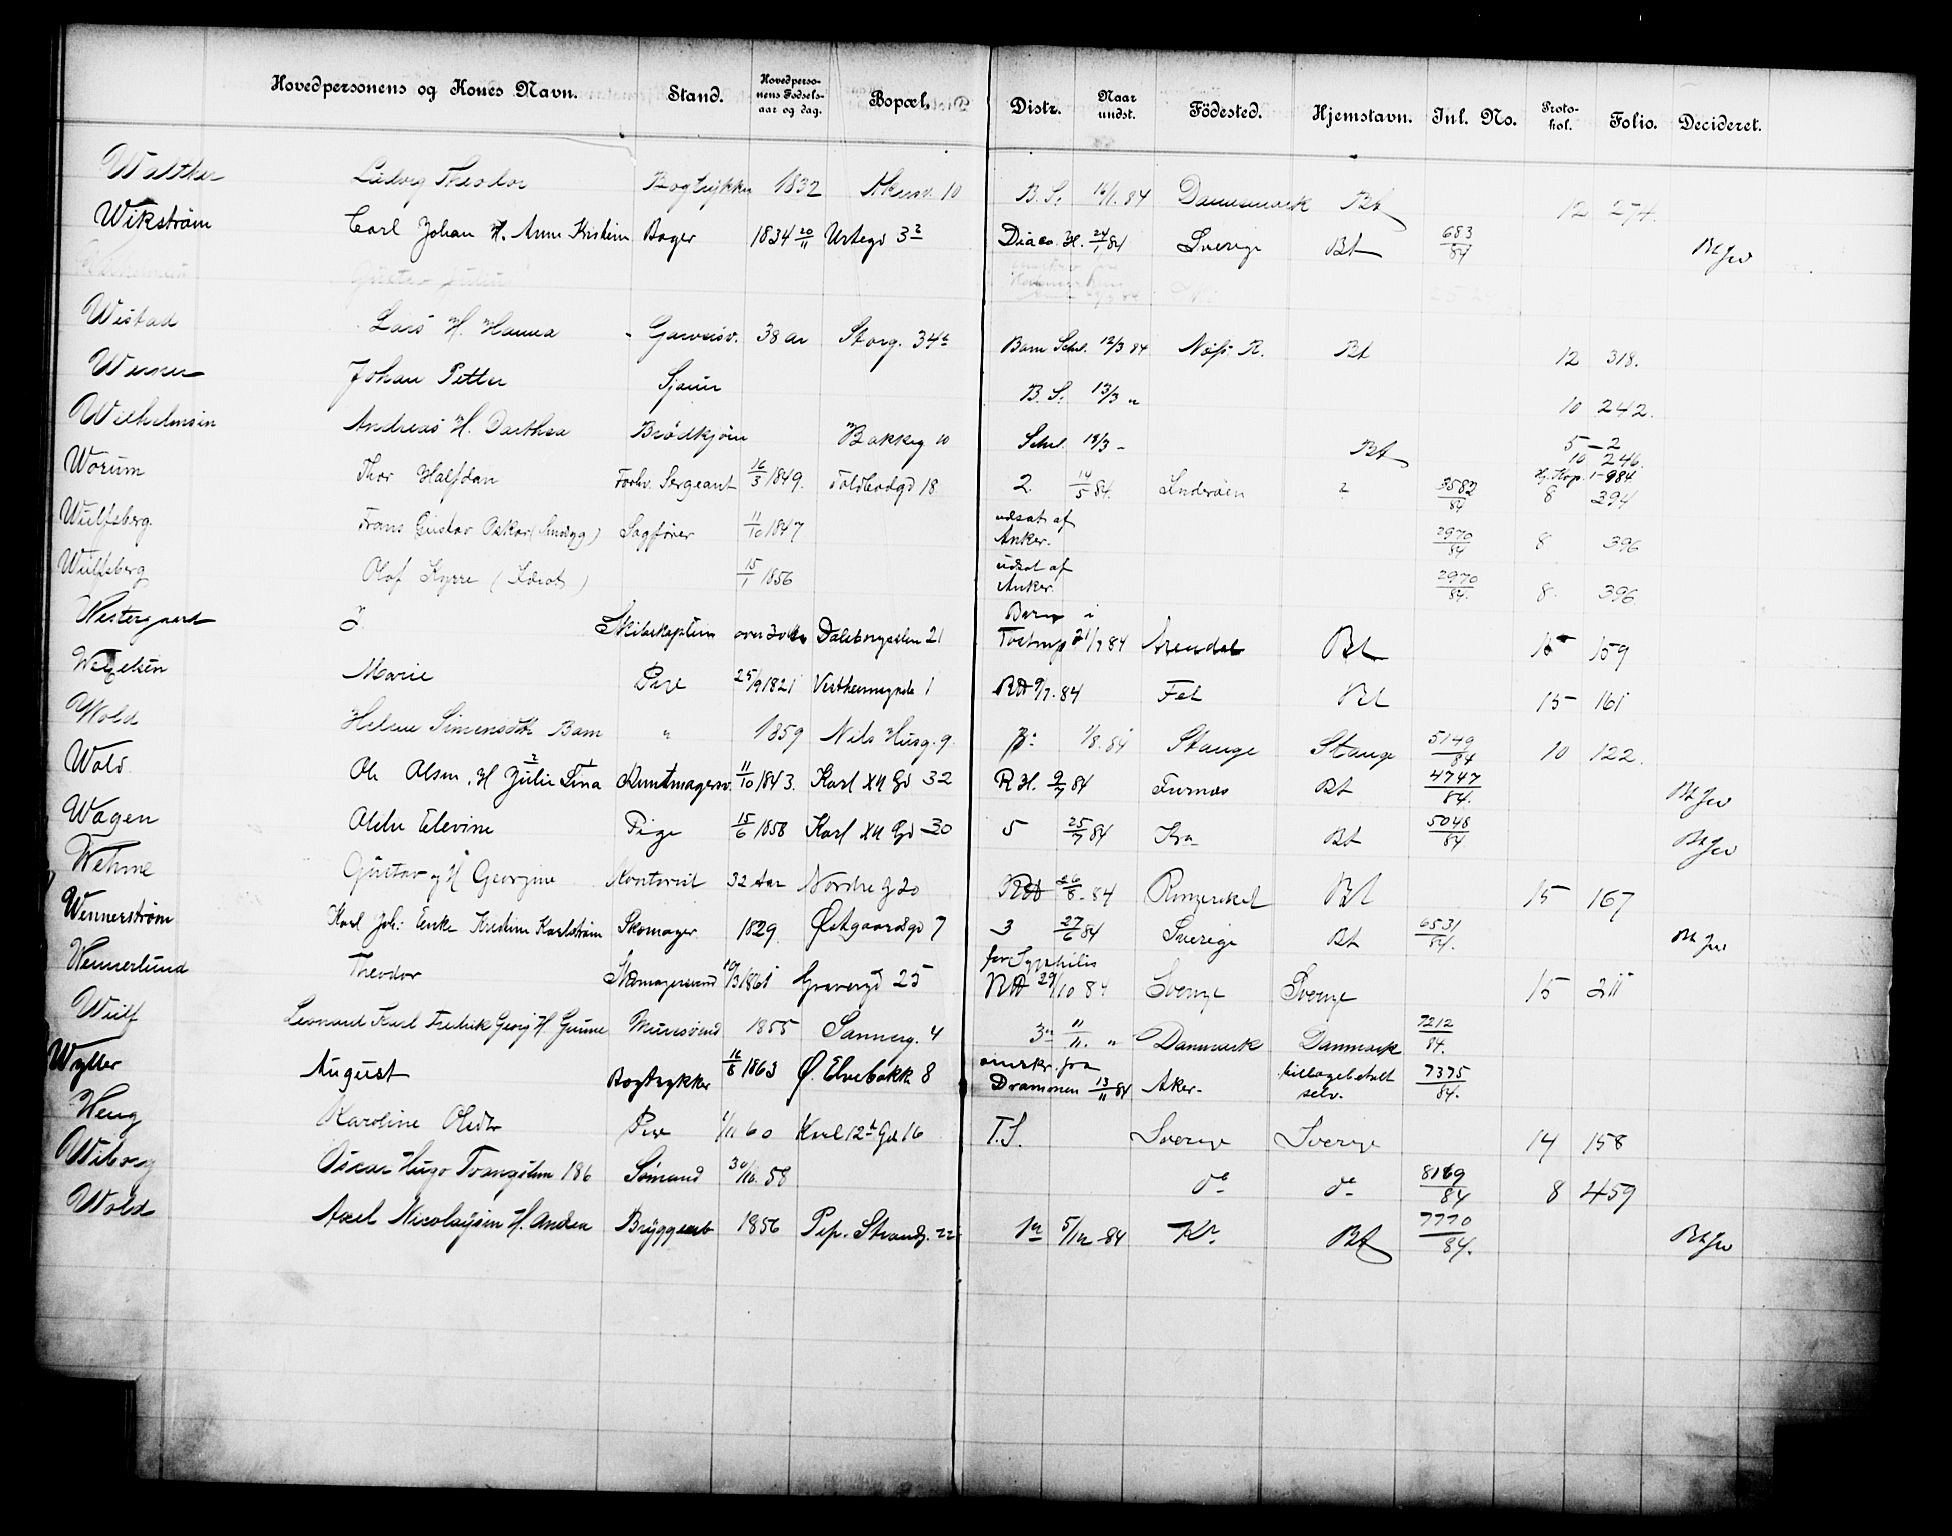 Hovedpersonens og Kones Navn. Stand. Hovedpersonens Fødselsaar og dag. Bopæl. Distr. Naar undst. Födested. Hjemstavn. Inl. No. Protokol. Folio. Decideret.
Walther Ludvig Theodor Bogtrykker 1832 Akersv. 10 B. S. 16/1 84 Dannemark Bt 12 274.
Wikstrøm Carl Johan H. Anna Kristin Bager 1834 20/11 Urtegd 3 Diaco. H. 24/1 84 Sverige Bt 683/84 Bt Jw
Gustav Julius
Wistad Lars H. Hanna Garversv. 38 ar Storg. 34 Barn Schl. 12/3 84 Næs R. Bt 12 318.
Werner Johan Petter Sjauer B. S. 13/3 " 10 242.
Wilhelmsen Andreas H. Dorthea Brødkjører Bakkeg 10 Schl. 18/3 - Bt 5 - 2 10 246.
Worum Thor Halfdan Forhv. Sergeant 16/3 1849. Toldbodgd 18 2 14/5 84. Inderøen 3582/84 8 394
Wulfsberg Frans Gustav Oskar ( ) Sagfører 11/10 1847 udsat af Anker. 2970/84 8 396
Wulfsberg Olaf Kyrre ( ) 15/1 1856 udsat af Anker 2970/84. 8. 396.
Westergaard J. Skibskaptein over 30 Aar Dalsbergstien 21 Barn i Tostrup 21/7 84 Arendal Bt 15 159
Marie Pige 25/9 1821 1 RA 9/7. 84 Fet Bt 15 161
Wold Helene Simensdtr Barn " 1859 Nils Husg. 9. 1/8. 84 Stange Stange 5149/84 10 122.
Wold Ole Olsen, H Julie Lina 11/10 1843. Karl XII Gd 32 R H. 9/7 84 Furnæs Bt 4747/84. Bt Jw
Wagen Oldie Elevine Pige 15/6 1858 Karl XII Gd 30 5 25/7 84 Kra Bt 5048/84 Bt Jw
Wehme Gustav og H Georgine Kontorist 32 Aar Nordre g 20 RA 26/8 84 Ringeriket Bt 15 167
Wennerstrøm Karl Joh: Enke Kristine Karlstrøm Skomager 1829. Østgaardsgd 7 3 27/6 84 Sverige Bt 6531/84. Bt Jw
Wennerlund Theodor Skomagersvend 10/3 1861 Gravergd 25 for Syphilis RA 29/10 84 Sverige Sverige 15 211
Wulf Leonard Karl Fredrik Georg H. Gunne Mursvend 1855 Sannerg. 4 3 11/11. " Danmark Danmark 7212/84.
Wyller August Bogtrykker 16/8 1863 Ø. Elvebakke 8 omskr. fra Drammen 13/11 84 Aker. tilbagebetalt selv. 7375/84.
Weng Karoline Olsdtr Pige 1/11 60 Karl 12t Gd 16 T. S. Sverige Sverige 14 158
Wiborg Oscar Hugo 186 Sømand 30/10. 58 do do 8169/84 8 459
Wold Axel Nicolaysen H. Andrea Bryggearb 1856 Pip. Strandg. 22 1 5/12 84 Kr. Bt 7770/84. Bt Jw